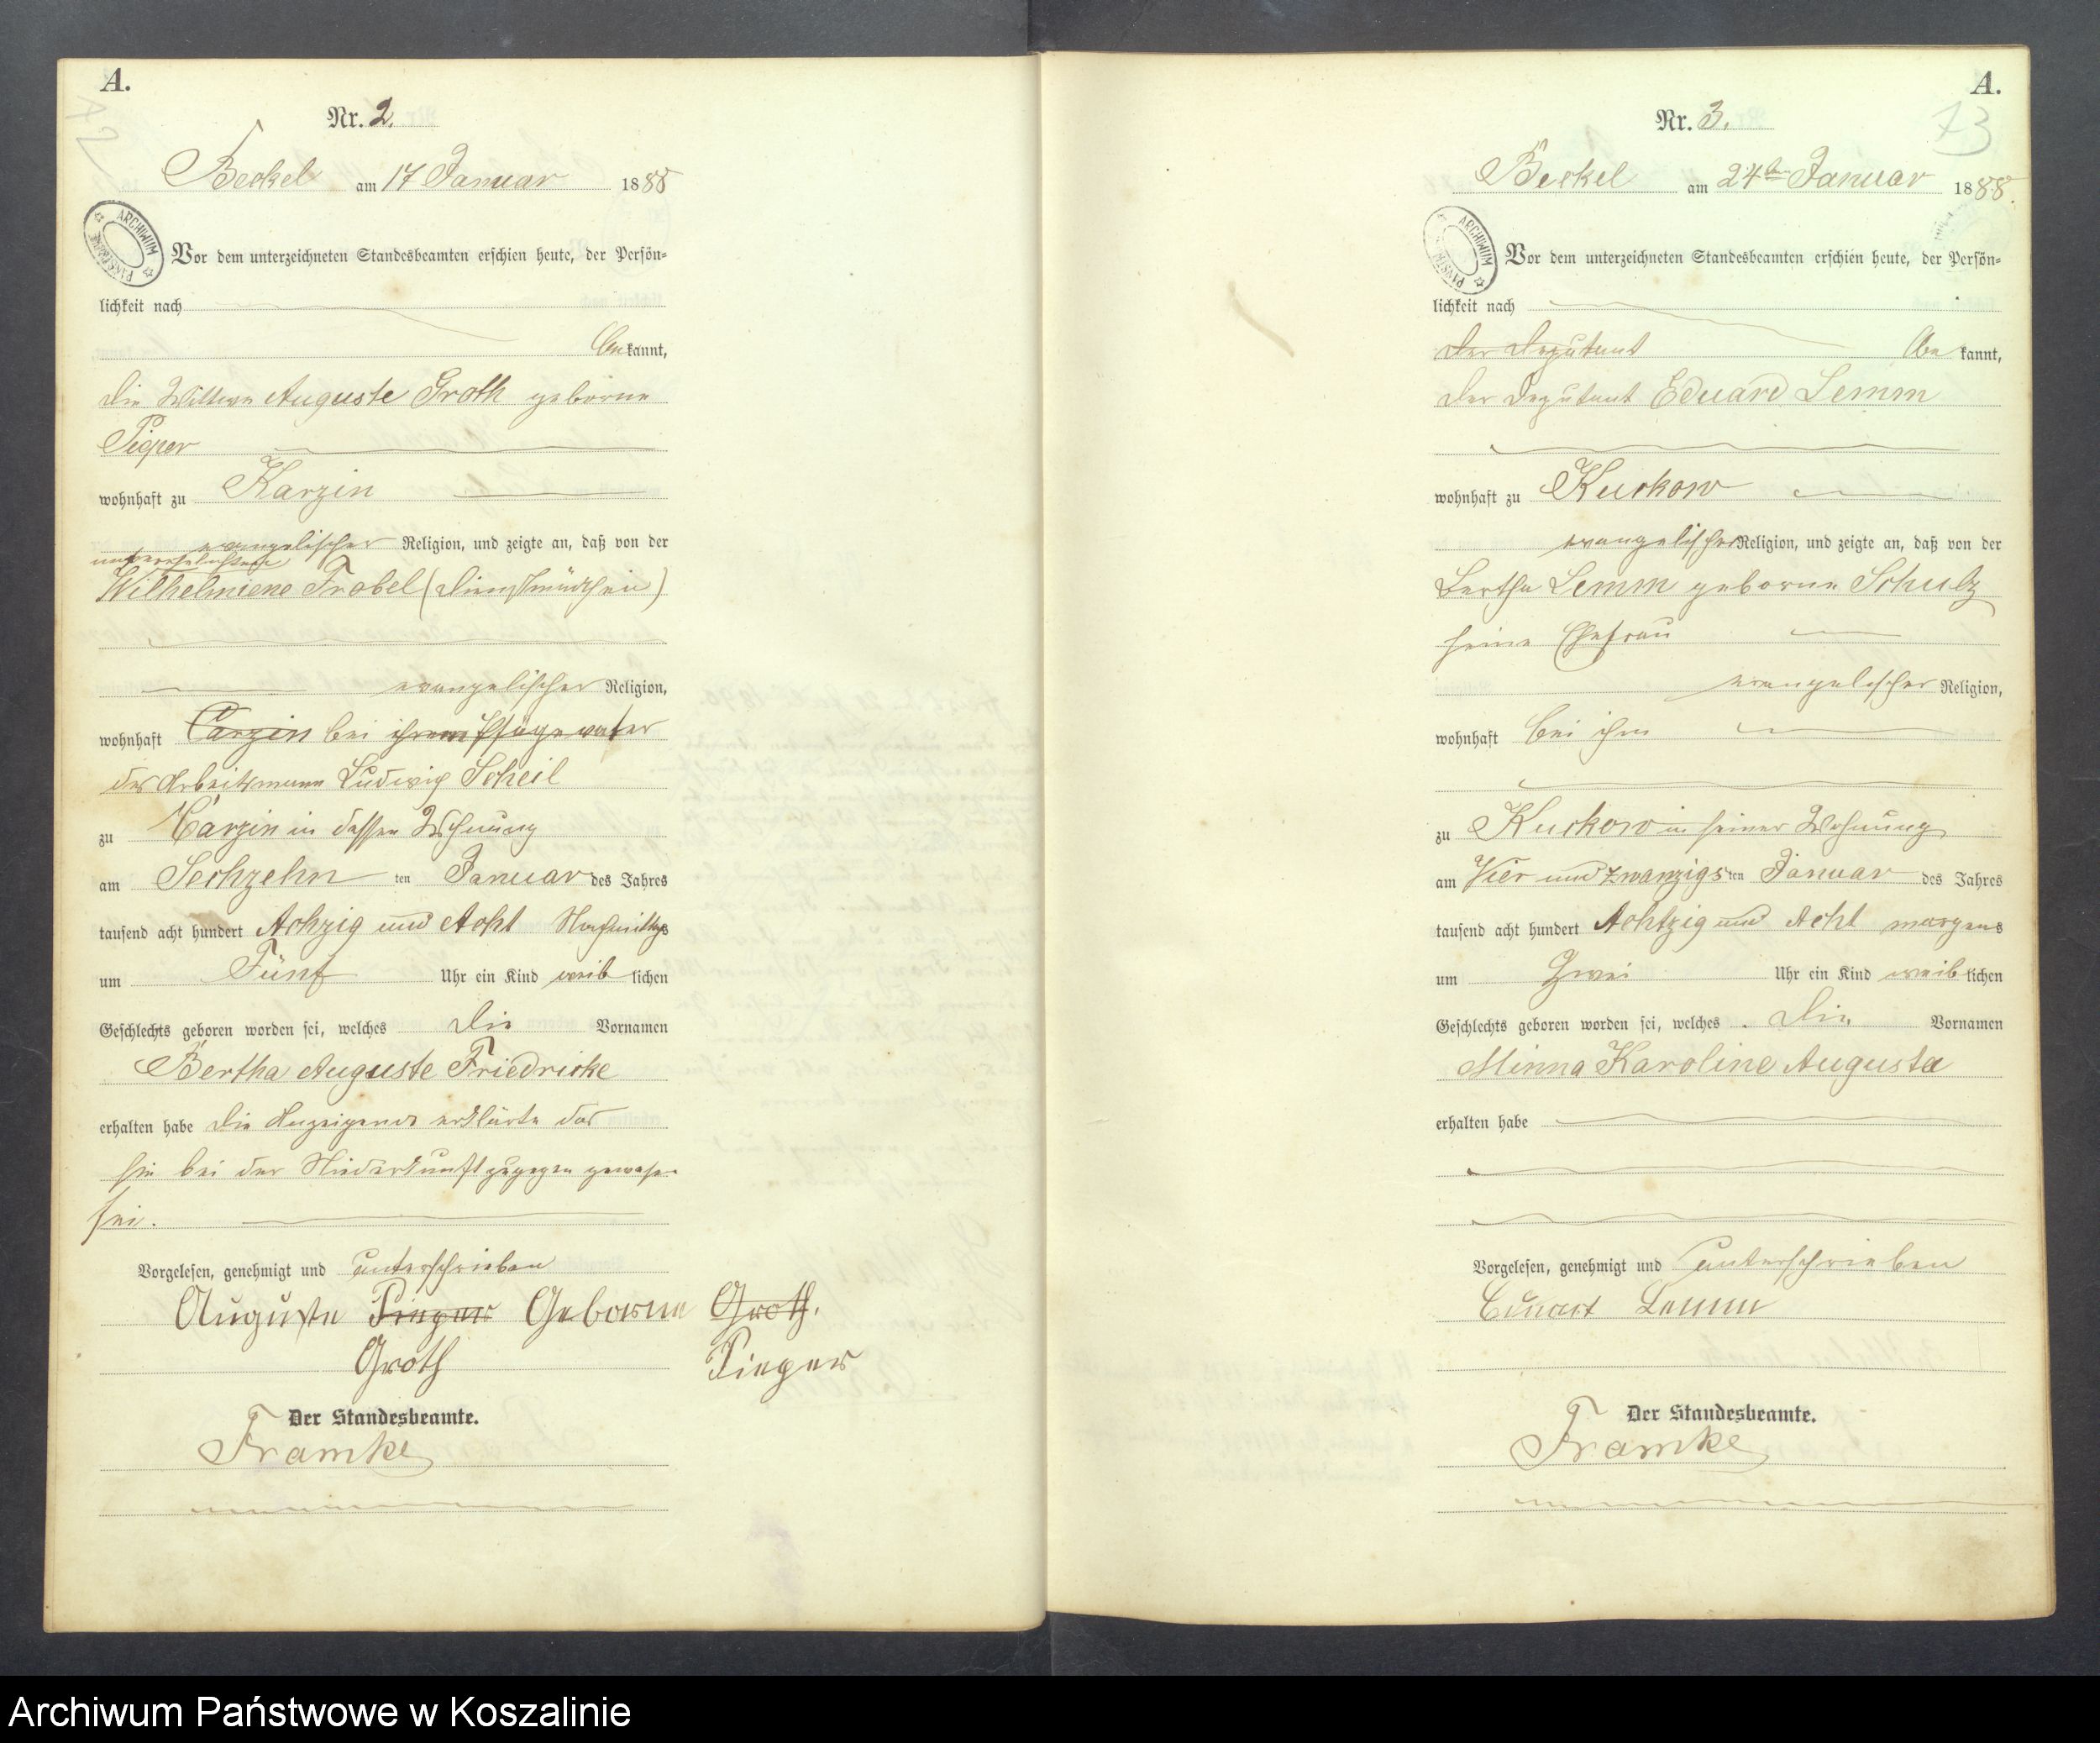 A.
Nr. 2.
Beckel am 17 Januar 1888
ARCHIWUM PAŃSTWOWE
Vor dem unterzeichneten Standesbeamten erschien heute, der Persön-
lichkeit nach
bekannt,
die Wittwe Auguste Groth geborne
Pieper
wohnhaft zu Karzin
evangelischer Religion, und zeigte an, daß von der
unverehelichten
Wilhelmiene Frobel (Dienstmädchen)
evangelischer Religion,
wohnhaft Carzin bei ihrem Pflegevater
der Arbeitsmann Ludwig Scheil
zu Carzin in dessen Wohnung
am Sechzehn ten Januar des Jahres
tausend acht hundert Achzig und Acht Nachmittags
um Fünf Uhr ein Kind weiblichen
Geschlechts geboren worden sei, welches die Vornamen
Bertha Auguste Friedricke
erhalten habe die Anzeigende erklärte das
sie bei der Niederkunft zugegen gewesen
sei.
Vorgelesen, genehmigt und unterschrieben
Auguste Pieper Geborne Groth.
Groth Pieper
Der Standesbeamte.
Framke
A.
73
Nr. 3.
Beckel am 24ten Januar 1888.
ARCHIWUM PAŃSTWOWE
Vor dem unterzeichneten Standesbeamten erschien heute, der Persön-
lichkeit nach
Der Deputant bekannt,
der Deputant Eduard Lemm
wohnhaft zu Kuckow
evangelischer Religion, und zeigte an, daß von der
Bertha Lemm geborne Schulz
seine Ehefrau
evangelischer Religion,
wohnhaft bei ihm
zu Kuckow in seiner Wohnung
am Vier und zwanzigsten Januar des Jahres
tausend acht hundert Achtzig und Acht morgens
um Zwei Uhr ein Kind weiblichen
Geschlechts geboren worden sei, welches die Vornamen
Minna Karoline Augusta
erhalten habe
Vorgelesen, genehmigt und unterschrieben
Lemm
Der Standesbeamte.
Framke
Archiwum Państwowe w Koszalinie